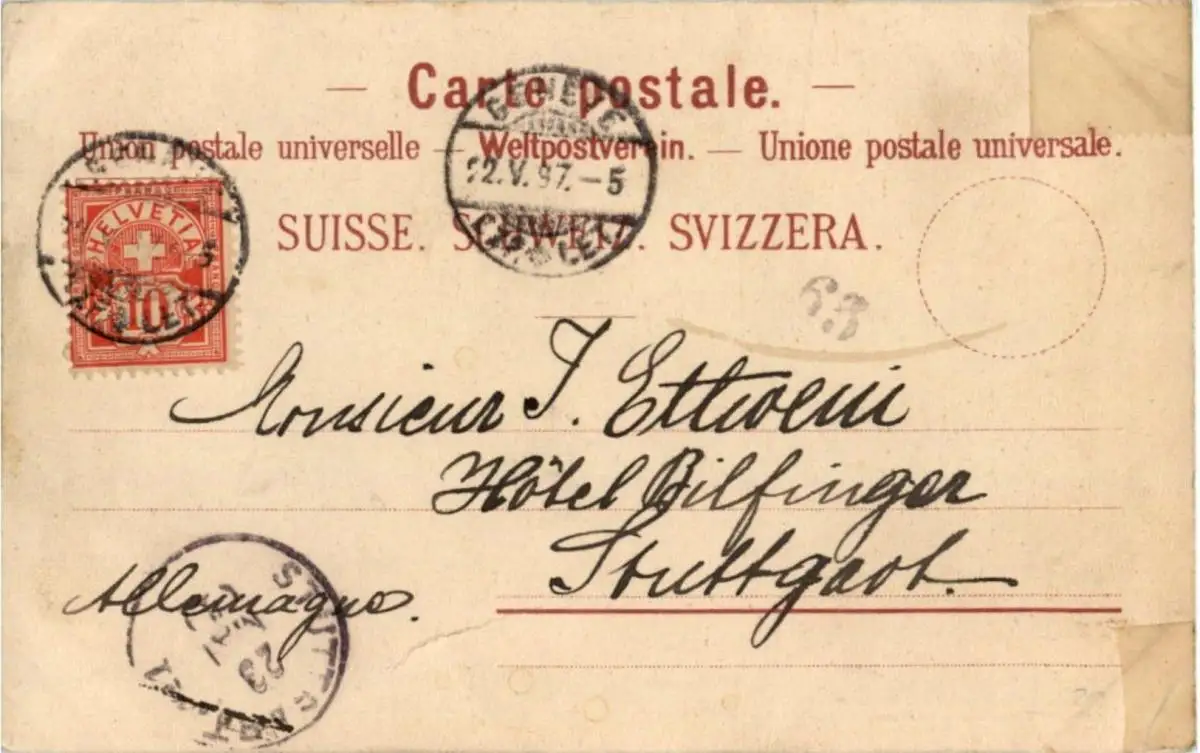 — Carte postale. —
Union postale universelle — Weltpostverein. — Unione postale universale.
SUISSE. SCHWEIZ. SVIZZERA.
GENÈVE
22.V.97.–5
EXP. LET.
HELVETIA
FRANCO
10
63
Monsieur J. Ettwein
Hôtel Bilfinger
Stuttgart
Allemagne.
STUTTGART
23